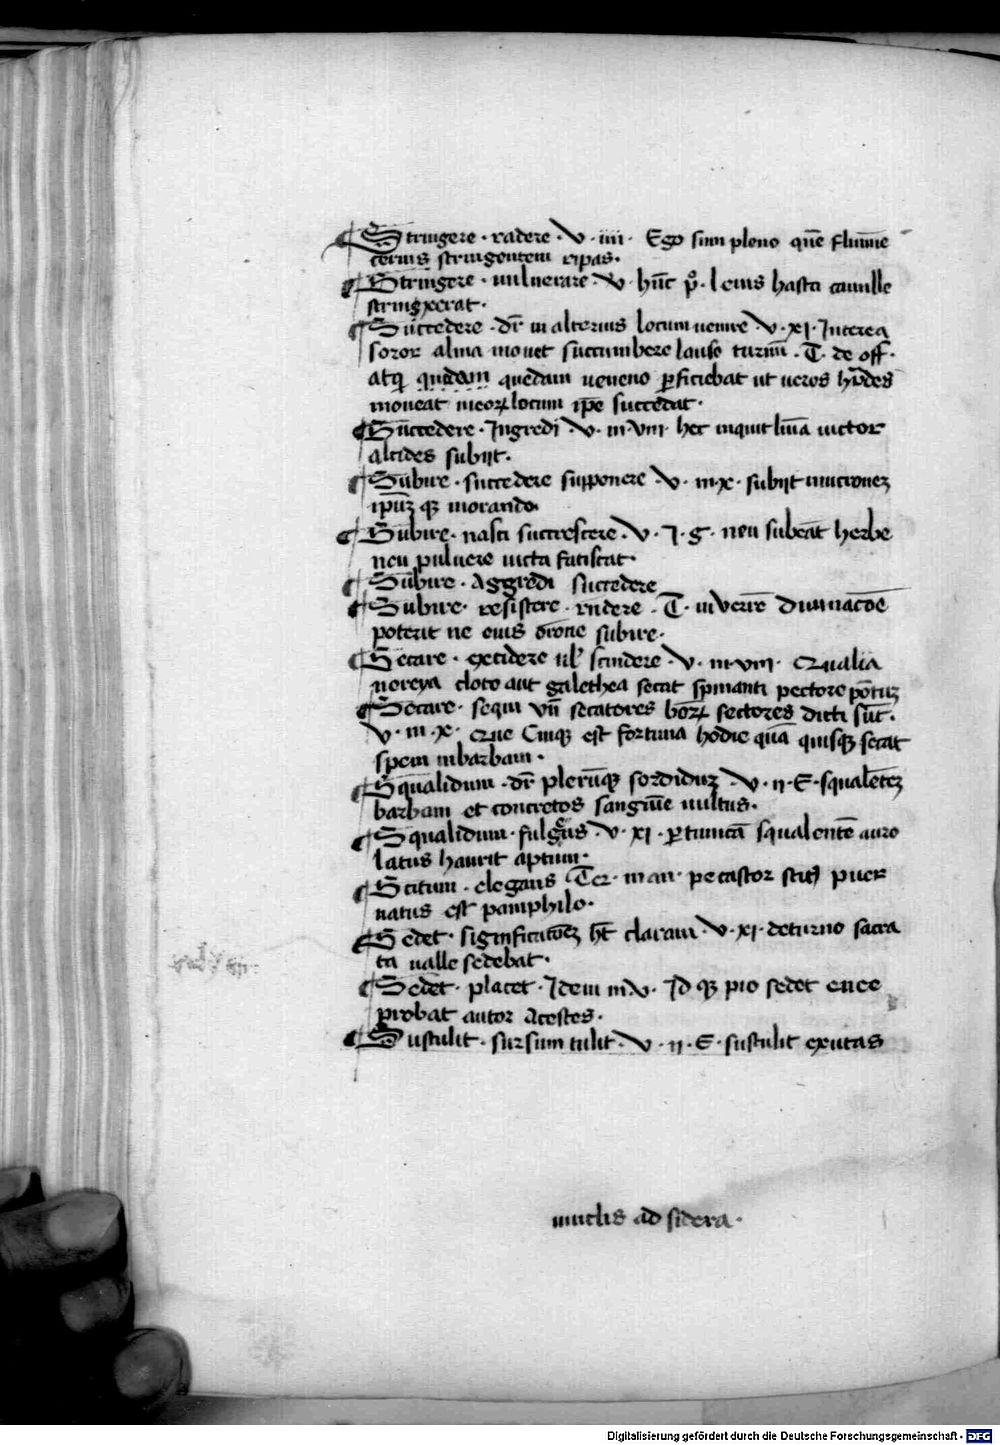 Stringere · radere · V · iiii · Ego sum pleno quē flumīe
cernis stringentem ripas ·
Stringere · uulnerare · V · hūc p̄º · leuis hasta camille
strinxerat ·
Succedere · dr̄ in alterius locum uenire · V · XI · Interea
soror alma monet succumbere lauso turnū · T · de off ·
atqꝫ quidam quedam ueneno ꝑficiebat ut ueros hēdes
moueat in eoꝝ locum ip̄e succedat ·
Succedere · Ingredi · V · in VIII · hec inquit līa uictor
alcides subiit ·
Subire · succedere supponere V · in X · subiit mucroneꝫ
ip̄uꝫ qꝫ morando
Subire · nasci succrescere · V · I · G · neu subeāt herbe
neu puluere uicta fatiscat ·
Subire · Aggredi succedere
Subire · resistere · ridere · T · in Verrē Diuinacōē
poterit ne eius orōne subire ·
Secare · excidere ul̄ scindere · V · in VIII · Qualia
nereya cloto aut galethea secat spumanti pectore pōtuꝫ
Secare · sequi vn̄ secatores boꝝ sectores dicti sūt ·
V · in · X · Que Cuiqꝫ est fortuna hodie quā quisqꝫ secat
spem in barbam ·
Squalidum · dr̄ plerūqꝫ sordiduꝫ V · ii · E · squalēteꝫ
barbam et concretos sanguīe uultus ·
Squalidum · fulgens V · XI · ꝑ tunicā squalentē auro
latus haurit aptum ·
Scitum · elegans Ter · in an · pecastor scitꝰ puer
natus est pamphilo ·
Sedet · significatōeꝫ ht̄ claram · V · XI · de turno sacra
ta ualle sedebat ·
Sedet · placet · Idem in V · Id qꝫ pio sedet enee
probat autor Acestes ·
Sustulit · sursum tulit · V · ii · E · sustulit exutas
uinclis ad sidera ·
Digitalisierung gefördert durch die Deutsche Forschungsgemeinschaft · DFG